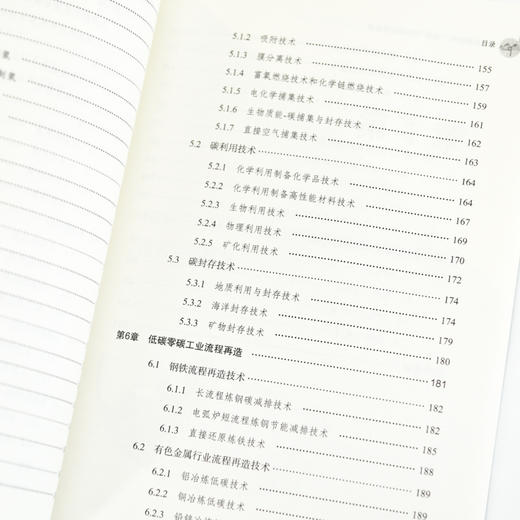 氢
制氢
目录
5.1.2 吸附技术 155
5.1.3 膜分离技术 157
5.1.4 富氧燃烧技术和化学链燃烧技术 159
5.1.5 电化学捕集技术 161
5.1.6 生物质能-碳捕集与封存技术 162
5.1.7 直接空气捕集技术 163
5.2 碳利用技术 164
5.2.1 化学利用制备化学品技术 164
5.2.2 化学利用制备高性能材料技术 167
5.2.3 生物利用技术 169
5.2.4 物理利用技术 170
5.2.5 矿化利用技术 172
5.3 碳封存技术 174
5.3.1 地质利用与封存技术 174
5.3.2 海洋封存技术 179
5.3.3 矿物封存技术 180
第6章 低碳零碳工业流程再造 181
6.1 钢铁流程再造技术 182
6.1.1 长流程炼钢碳减排技术 182
6.1.2 电弧炉短流程炼钢节能减排技术 185
6.1.3 直接还原炼铁技术 188
6.2 有色金属行业流程再造技术 189
6.2.1 铝冶炼低碳技术 189
6.2.2 铜冶炼低碳技术
6.2.3 铅锌冶炼